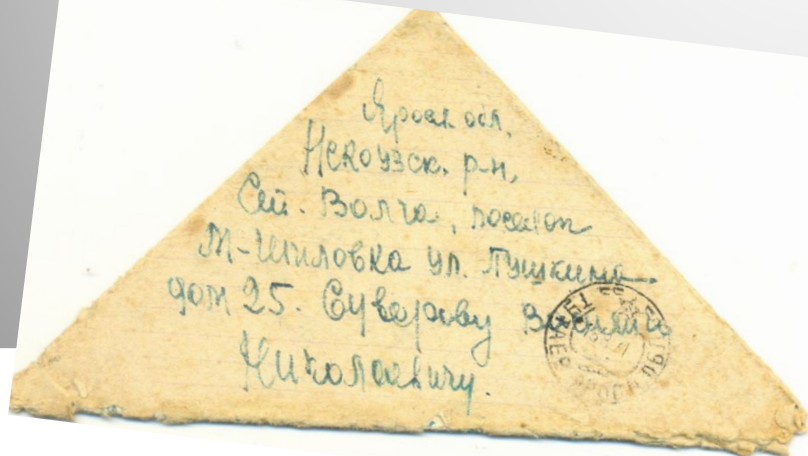 Яросл. обл.
Некоузск. р-н,
Ст. Волга, поселок
М-Шиловка ул. Пушкина
дом 25. Суворову Василию
Николаевичу.